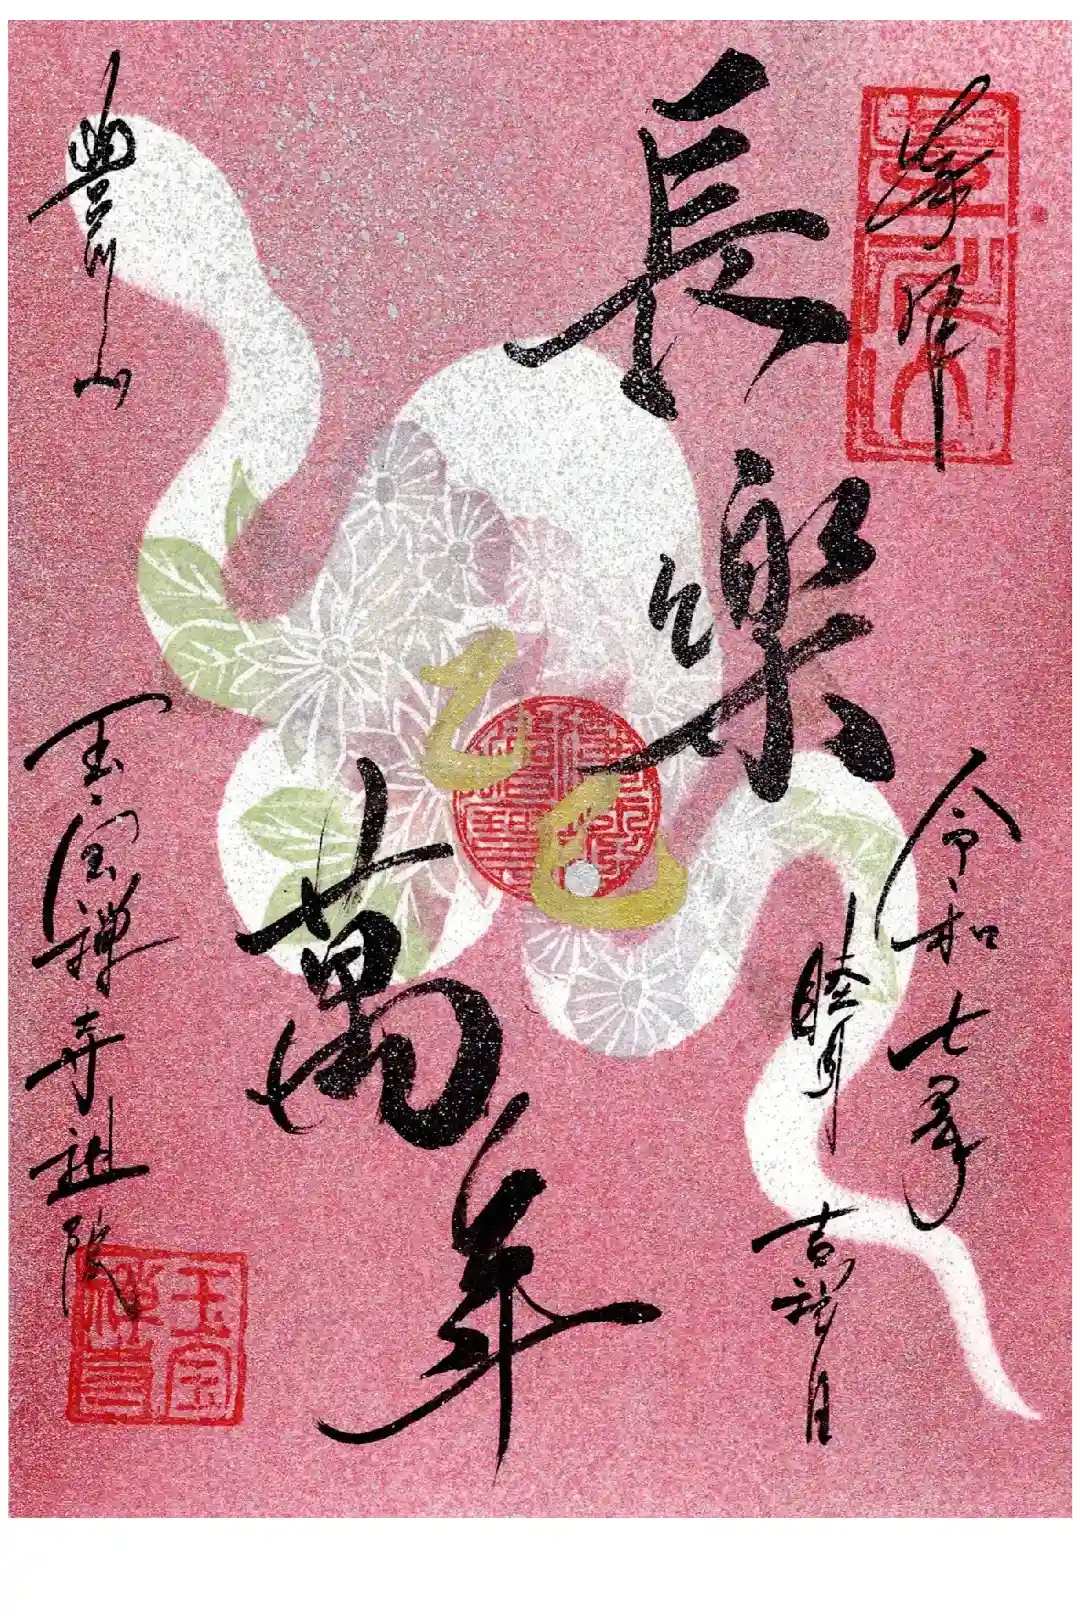 奉拝
令和七年
睦月
吉祥日
長樂
萬年
乙巳
豊川山
玉宝禅寺祖院
玉宝
禅寺